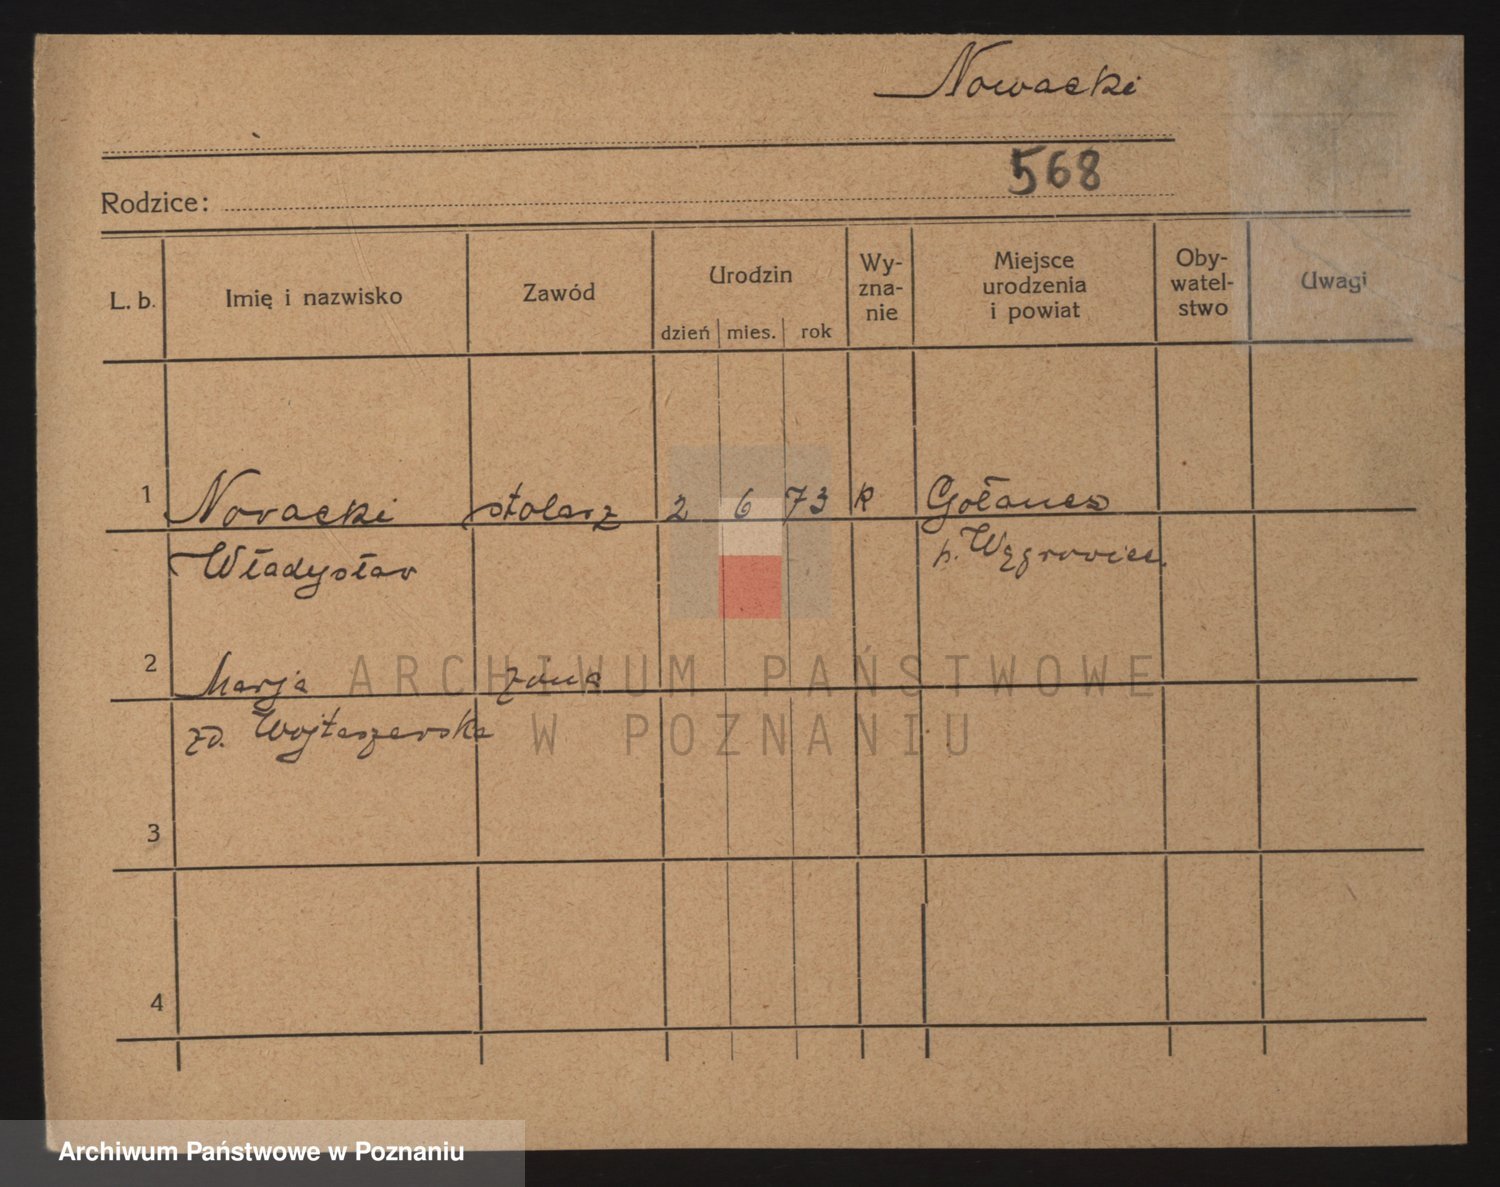 Nowacki
568
Rodzice:
L. b.
Imię i nazwisko
Zawód
Urodzin
dzień mies. rok
Wy-
zna-
nie
Miejsce
urodzenia
i powiat
Oby-
watel-
stwo
Uwagi
1 Nowacki stolarz 2 6 73 R Gołancz
Władysław p. Wągrowiec.
2 Marja żona
zd. Wojtaszewska
3
4
ARCHIWUM PAŃSTWOWE
W POZNANIU
Archiwum Państwowe w Poznaniu